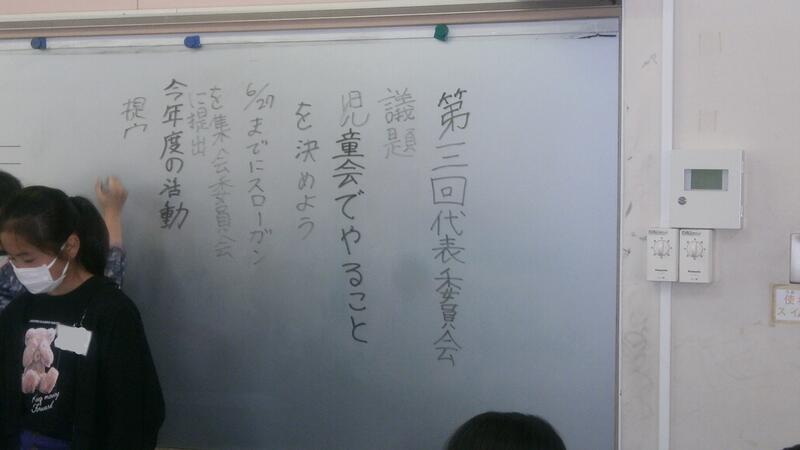 第三回代表委員会
議題
児童会でやること
を決めよう
6/27までにスローガン
を集会委員会
に提出
今年度の活動
提